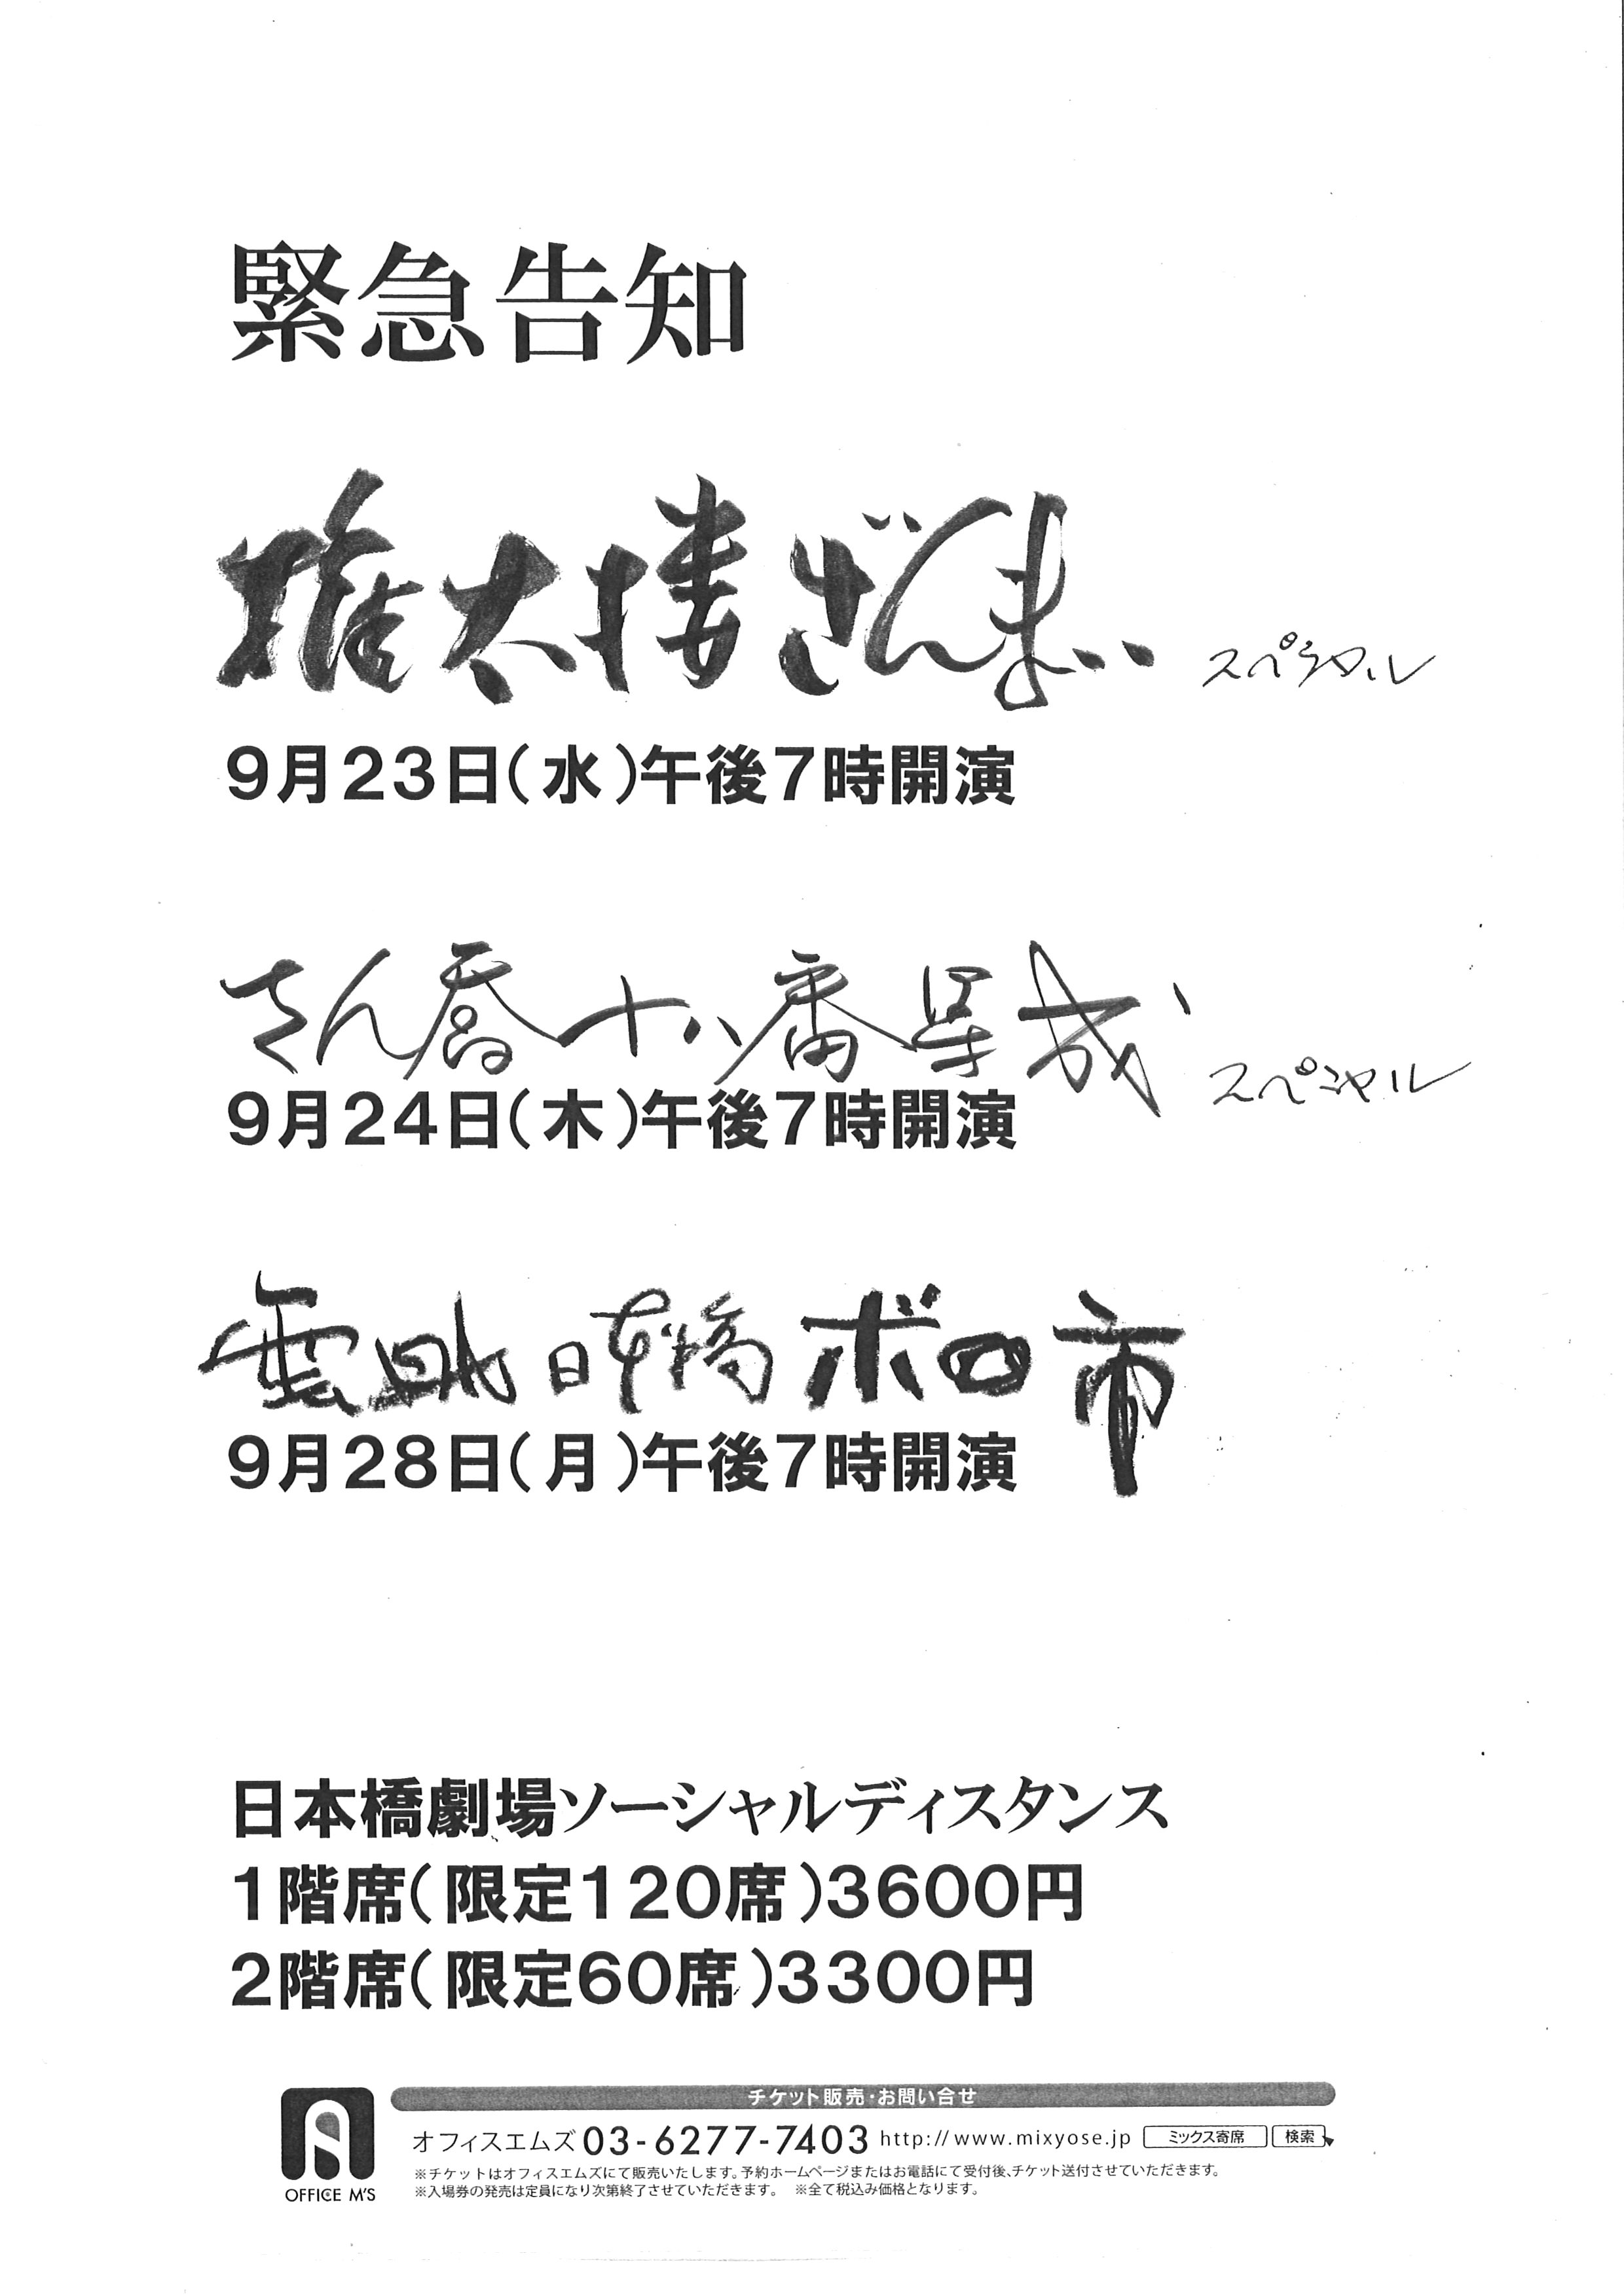 緊急告知
権太楼ざんまい スペシャル
9月23日(水)午後7時開演
さん喬十八番集成 スペシャル
9月24日(木)午後7時開演
雲助 日本橋ボロ市
9月28日(月)午後7時開演
日本橋劇場ソーシャルディスタンス
1階席(限定120席)3600円
2階席(限定60席)3300円
チケット販売・お問い合せ
オフィスエムズ 03-6277-7403 http://www.mixyose.jp ミックス寄席 検索
※チケットはオフィスエムズにて販売いたします。予約ホームページまたはお電話にて受付後、チケット送付させていただきます。
※入場券の発売は定員になり次第終了させていただきます。 ※全て税込み価格となります。
OFFICE M'S